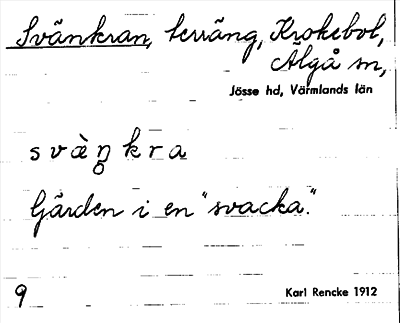 Svänkran, terräng, Krokebol,
Älgå sn,
Jösse hd, Värmlands län
s v ὰ ŋ̥ k r a
Gården i en "svacka."
9
Karl Rencke 1912